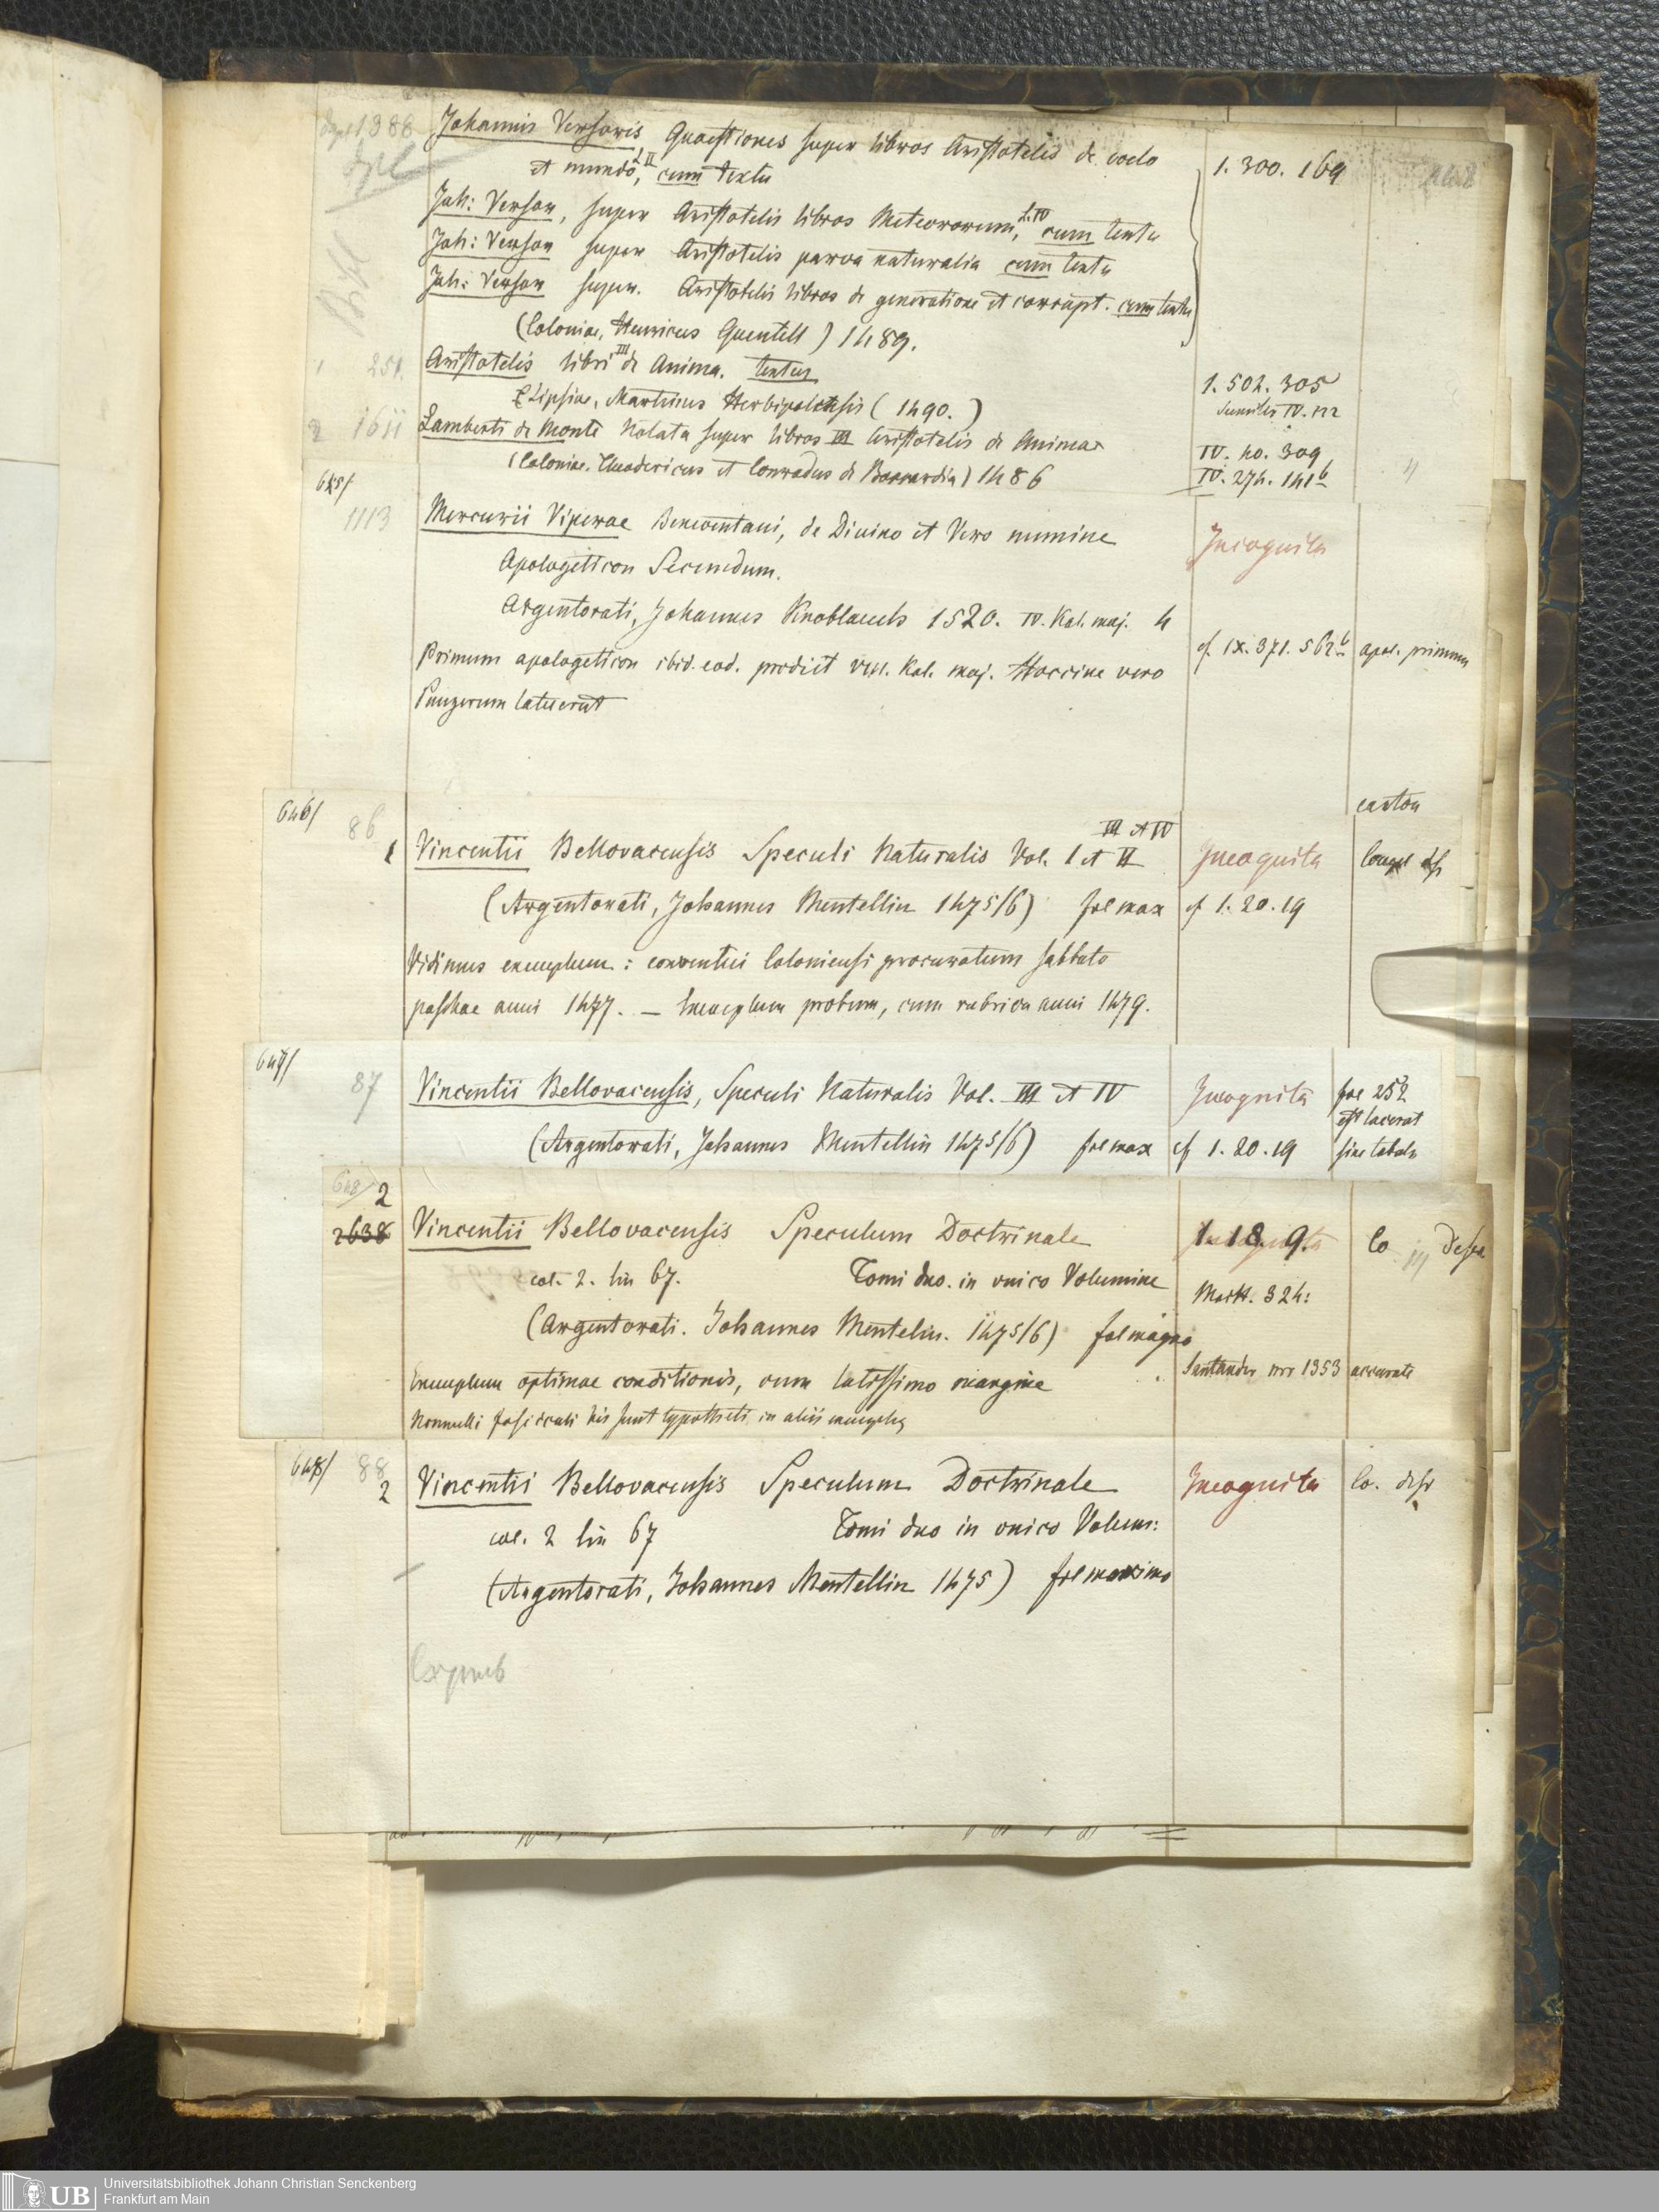 1386 Johannis Versoris, Quaestiones super libros Aristotelis de coelo 1. 300. 169
et mundo, L II cum textu
Joh: Versor, super Aristotelis libros Meteororum, L. IV cum textu
Joh: Versor super Aristotelis parva naturalia cum textu
Joh: Versor super. Aristotelis libros de generatione et corrupt. cum textu
(Coloniae, Henricus Quentell) 1489.
1 251. Aristotelis libri III de Anima. textus 1. 502. 305
Lipsiae, Martinus Herbipolensis (1490.) IV. 
2 1611 Lamberti de Monte Notata super libros III Aristotelis de Anima IV. 40. 309
(Coloniae. Theodericus et Conradus de ) 1486 IV. 274. 141b 4
645/
1113 Mercurii Viperae Beneventani, de Diuino et Vero numine Incognita
Apologeticon Secundum.
Argentorati, Johannes Knoblauch 1520. IV. Kal. maj. 4
Primum apologeticon ibid. eod. prodiit VIII. Kal. maj. Hoccine vero cf. IX. 371. 562b apol. primum
Panzerum latuerunt
646/ 86 carton
III et IV
1 Vincentii Bellovacensis Speculi Naturalis Vol. I et II Incognita
(Argentorati, Johannes Mentellin 1475/6) fol max cf 1. 20. 19
Vidimus exemplum: conventui Coloniensi procuratum sabbato
paschae anni 1477. — Exemplum probum, cum rubrica anni 1479.
647/ 87 Vincentii Bellovacensis, Speculi Naturalis Vol. III et IV Incognita fol 252
est lacerat
(Argentorati, Johannes Mentellin 1475/6) fol max cf 1. 20. 19 sine tabula
648/ 2
2638 Vincentii Bellovacensis Speculum Doctrinale 1. 18. 9. Co
col. 2. lin 67. Tomi duo. in unico Volumine
(Argentorati. Johannes Mentelin. 1475/6) fol magno
Exemplum optimae conditionis, cum latissimo margine Santander nro 1353 accurate
Nonnulli fasciculi bis sunt typotheti in aliis exemplis
648/ 88
2 Vincentii Bellovacensis Speculum Doctrinale Incognita Co.
col. 2 lin 67 Tomi duo in unico Volum:
(Argentorati, Johannes Mentellin 1475) fol maximo
UB
Universitätsbibliothek Johann Christian Senckenberg
Frankfurt am Main